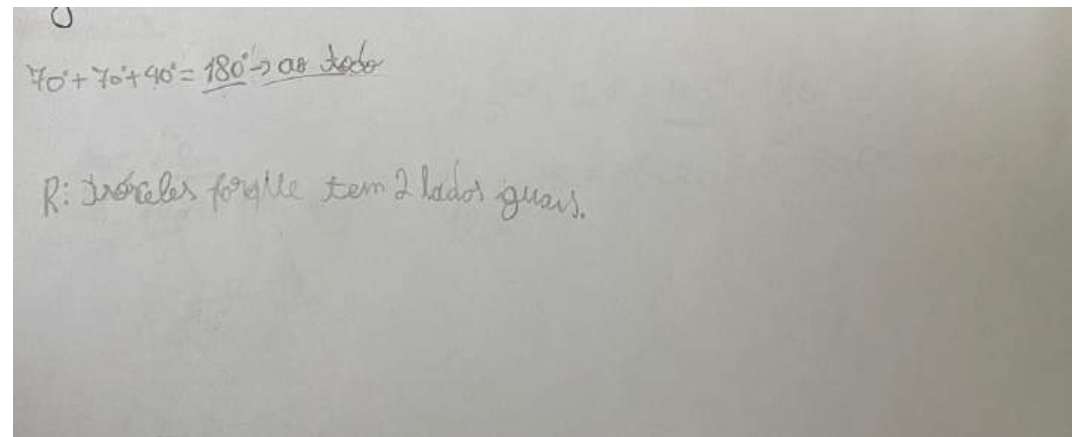 70°+70°+40°=180°→ao todo
R: Isósceles porque tem 2 lados iguais.